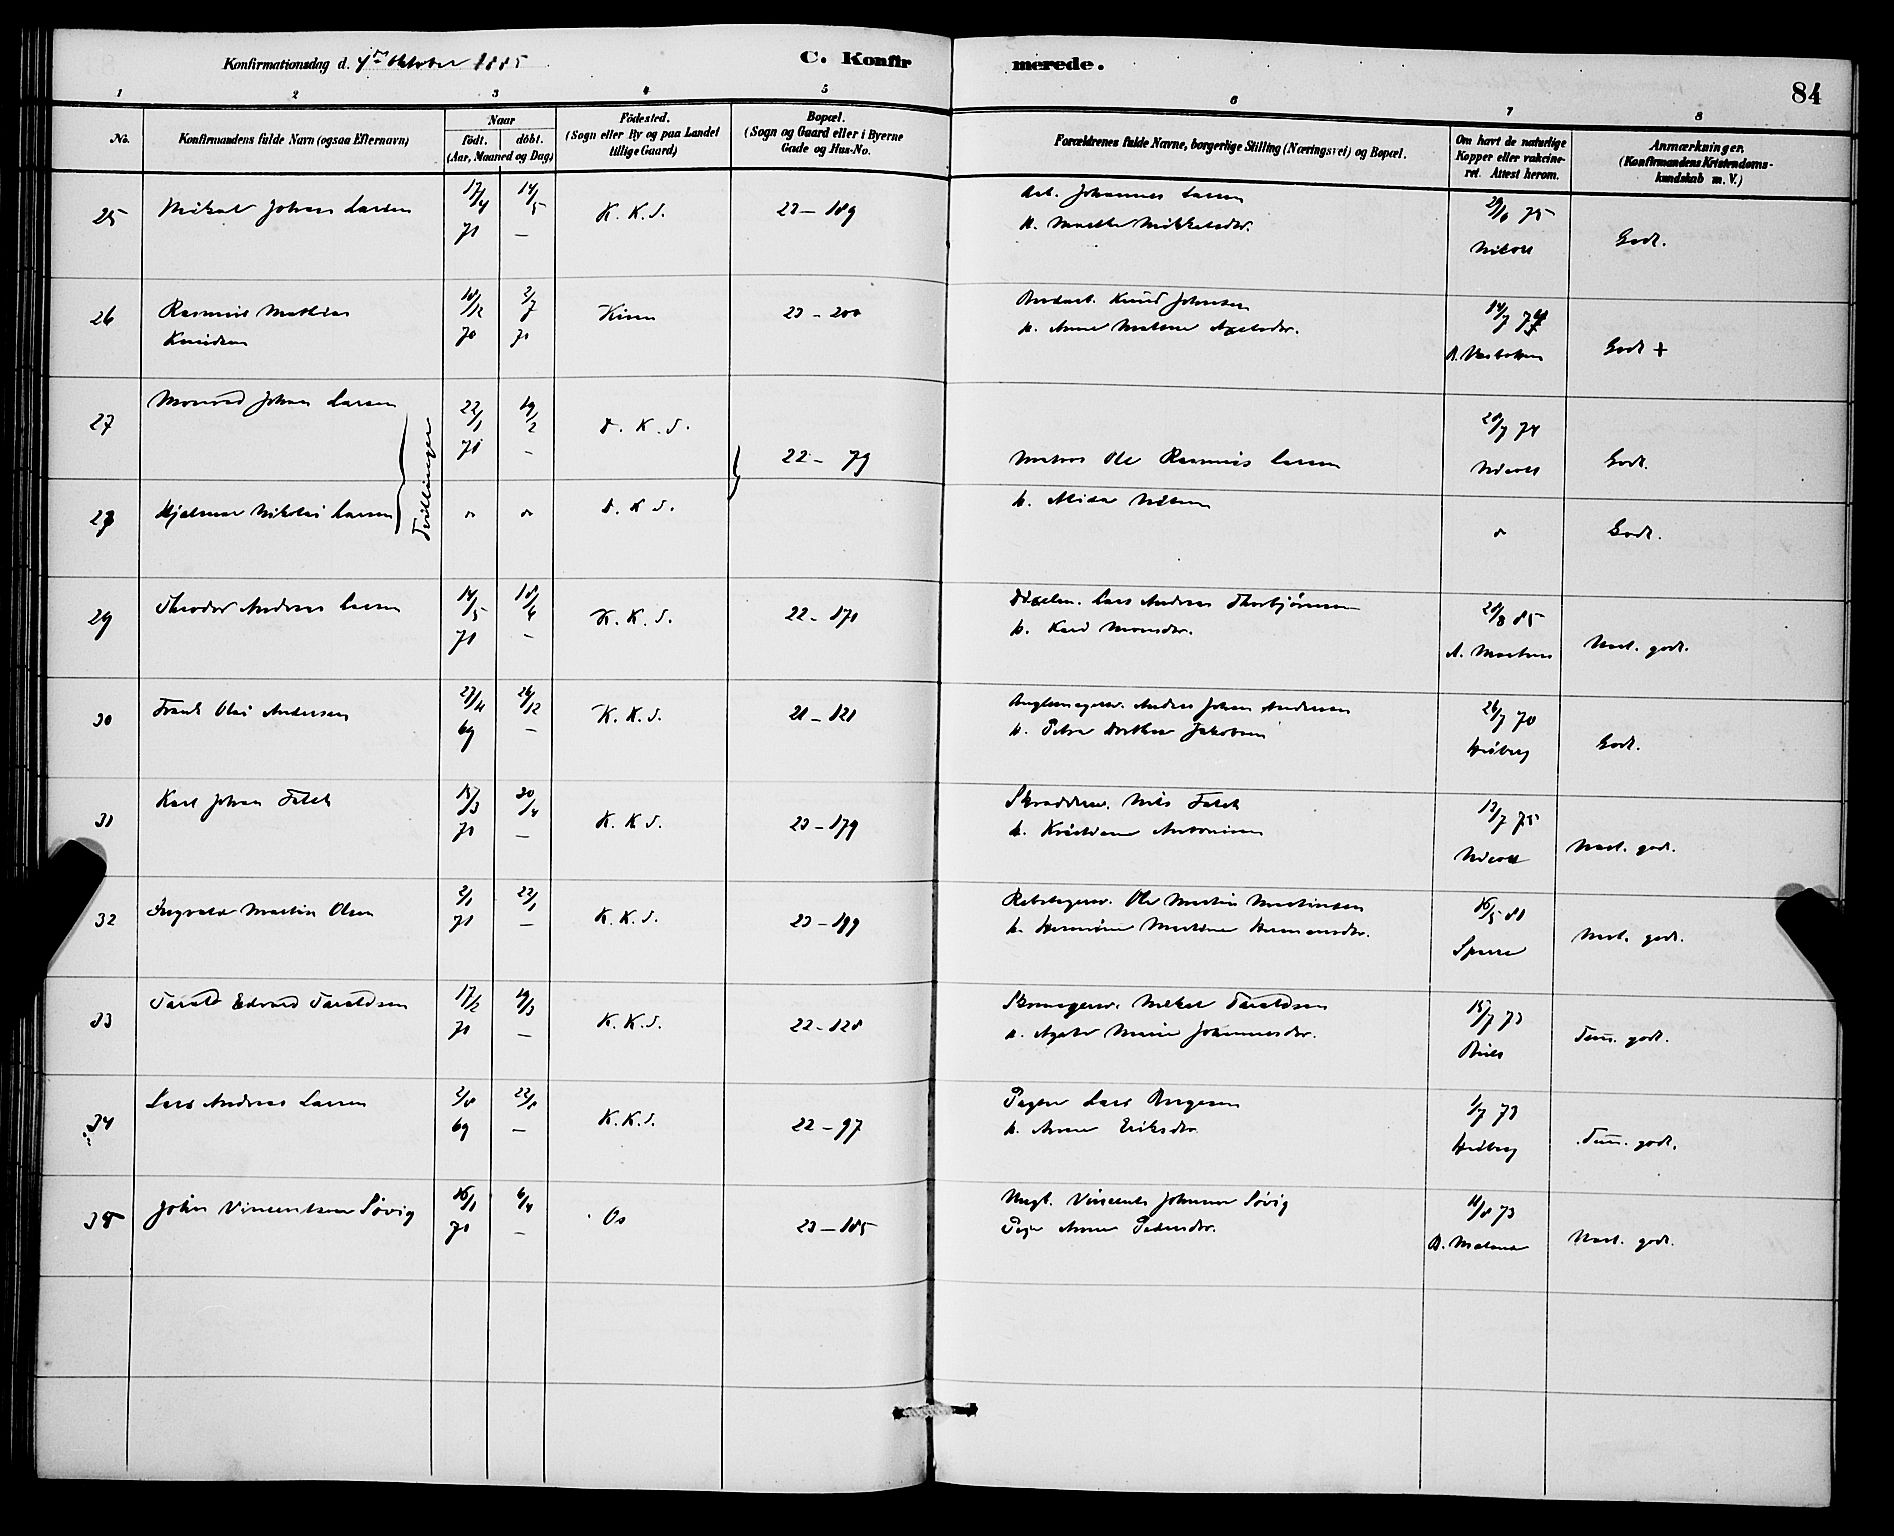 Konfirmationsdag d. 4de Oktober 1885
C. Konfirmerede.
84
1 2 3 4 5 6 7 8
No.
Konfirmandens fulde Navn (ogsaa Efternavn)
Naar
födt. döbt.
(Aar, Maaned og Dag)
Födested.
(Sogn eller By og paa Landet
tillige Gaard)
Bopæl.
(Sogn og Gaard eller i Byerne
Gade og Hus-No.
Forældrenes fulde Navne, borgerlige Stilling (Næringsvei) og Bopæl.
Om havt de naturlige
Kopper eller vakcine-
ret. Attest herom.
Anmærkninger.
(Konfirmandens Kristendoms-
kundskab m. V.)
25 Mikal Johan Larsen 17/4 71 14/5 — K. K. S. 23 – 189
Arb. Johannes Larsen
h. Marthe Mikkelsdr.
75
Godt.
26 Rasmus Mathias
Knudsen
18/12 70 2/7 71 Kinn 23 – 200
Knud Johnsen
h. Anne Axelsdr.
14/7 74
Godt +
27 Monrad Johan Larsen 22/1 71 19/2 – D. K. S.
Tvillinger
22 – 79
Matros Ole Rasmus Larsen
28/7 74
Godt.
28 Hjalmar Nikolai Larsen D. K. S.
h. Alida Nilsen
Godt.
29 Theodor Andreas Larsen 14/5 71 18/6 – K. K. S. 22 – 171
Lars Andreas Thorbjørnsen
h. Kari Monsdr.
28/8 85
Mart. godt.
30 Frank Olai Andersen 27/11 69 26/12 – K. K. S. 21 – 121
Anders Johan Andersen
h. Petra Dorthea Jakobsen
26/7 70
Heiberg
Godt.
31 Karl Johan Falck 15/3 71 30/4 — K. K. S. 23 – 179
Skræddersv. Nils Falck
h. Kristiane Antonisen
12/7 75
Mart. godt.
32 Ingvald Martin Olsen 2/1 71 22/1 — K. K. S. 23 – 199
Rebslagersv. Ole Martin Martinsen
h. Martine Hermansdr.
16/5 81
Sparre
Mart. godt.
33 Tarald Edvard Taraldsen 17/2 71 19/3 — K. K. S. 22 – 128
Skomagersv. Mikal Taraldsen
h. Agate Marie Johannesdr.
15/7 73
Tem. godt.
34 Lars Andreas Larsen 2/8 69 22/8 — K. K. S. 22 – 97
Lars Børgesen
h. Anne Eriksdr.
1/7 73
Heiberg
Tem. godt.
35 John Vincentsen Søvig 16/1 71 6/4 — Os 23 – 185
Ungk. Vincents Johnsen Søvig
Pige Anne Pedersdr.
11/8 73
Mart. godt.